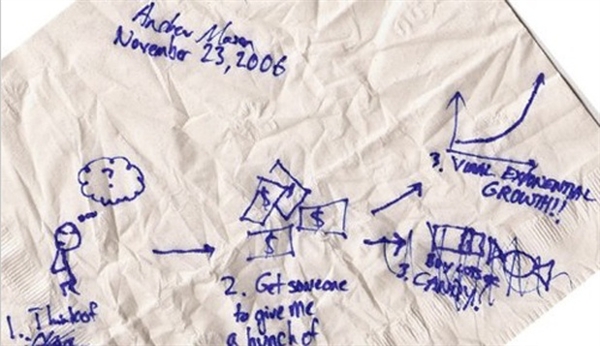 Andrew Mason
November 23, 2006
?
$
$
$
3. VIRAL EXPONENTIAL
GROWTH!!
BUY LOTS OF
3. CANDY!
2. Get someone
to give me
a bunch of
1. I think of